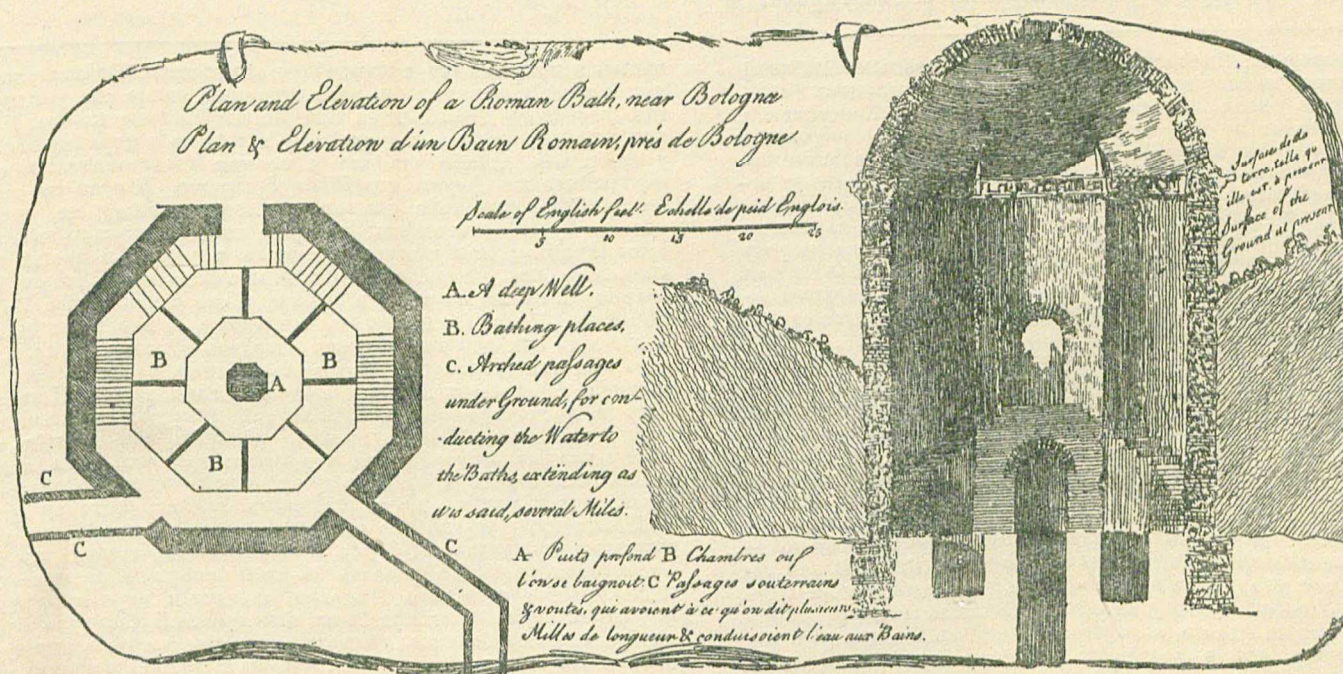 Plan and Elevation of a Roman Bath, near Bologna
Plan & Elévation d'un Bain Romain, prés de Bologne
Scale of English feet. Echelle de peid Englois.
5 10 15 20 25
A. A deep Well.
B. Bathing places.
C. Arched passages
under Ground, for con-
-ducting the Water to
the Baths, extending as
it is said, several Miles.
A Puits profond B Chambres ou
l'on se baignoit. C Passages souterrains
& voutés, qui avoient à ce qu'on dit plusieurs
Milles de longueur & conduisoient l'eau aux Bains.
Surface de la
terre, telle qu
ille est à present
Surface of the
Ground at present
B
A
B
B
C
C
C